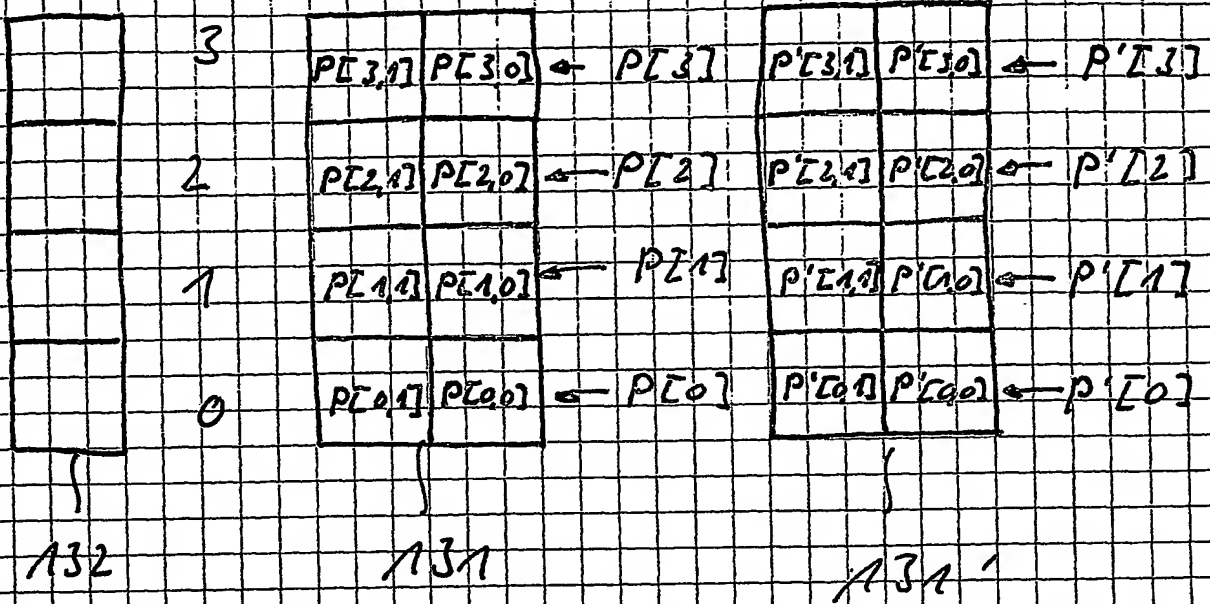 3 P[3,1] P[3,0] P[3] P'[3,1] P'[3,0] P'[3]
2 P[2,1] P[2,0] P[2] P'[2,1] P'[2,0] P'[2]
1 P[1,1] P[1,0] P[1] P'[1,1] P'[1,0] P'[1]
0 P[0,1] P[0,0] P[0] P'[0,1] P'[0,0] P'[0]
132 131 131'